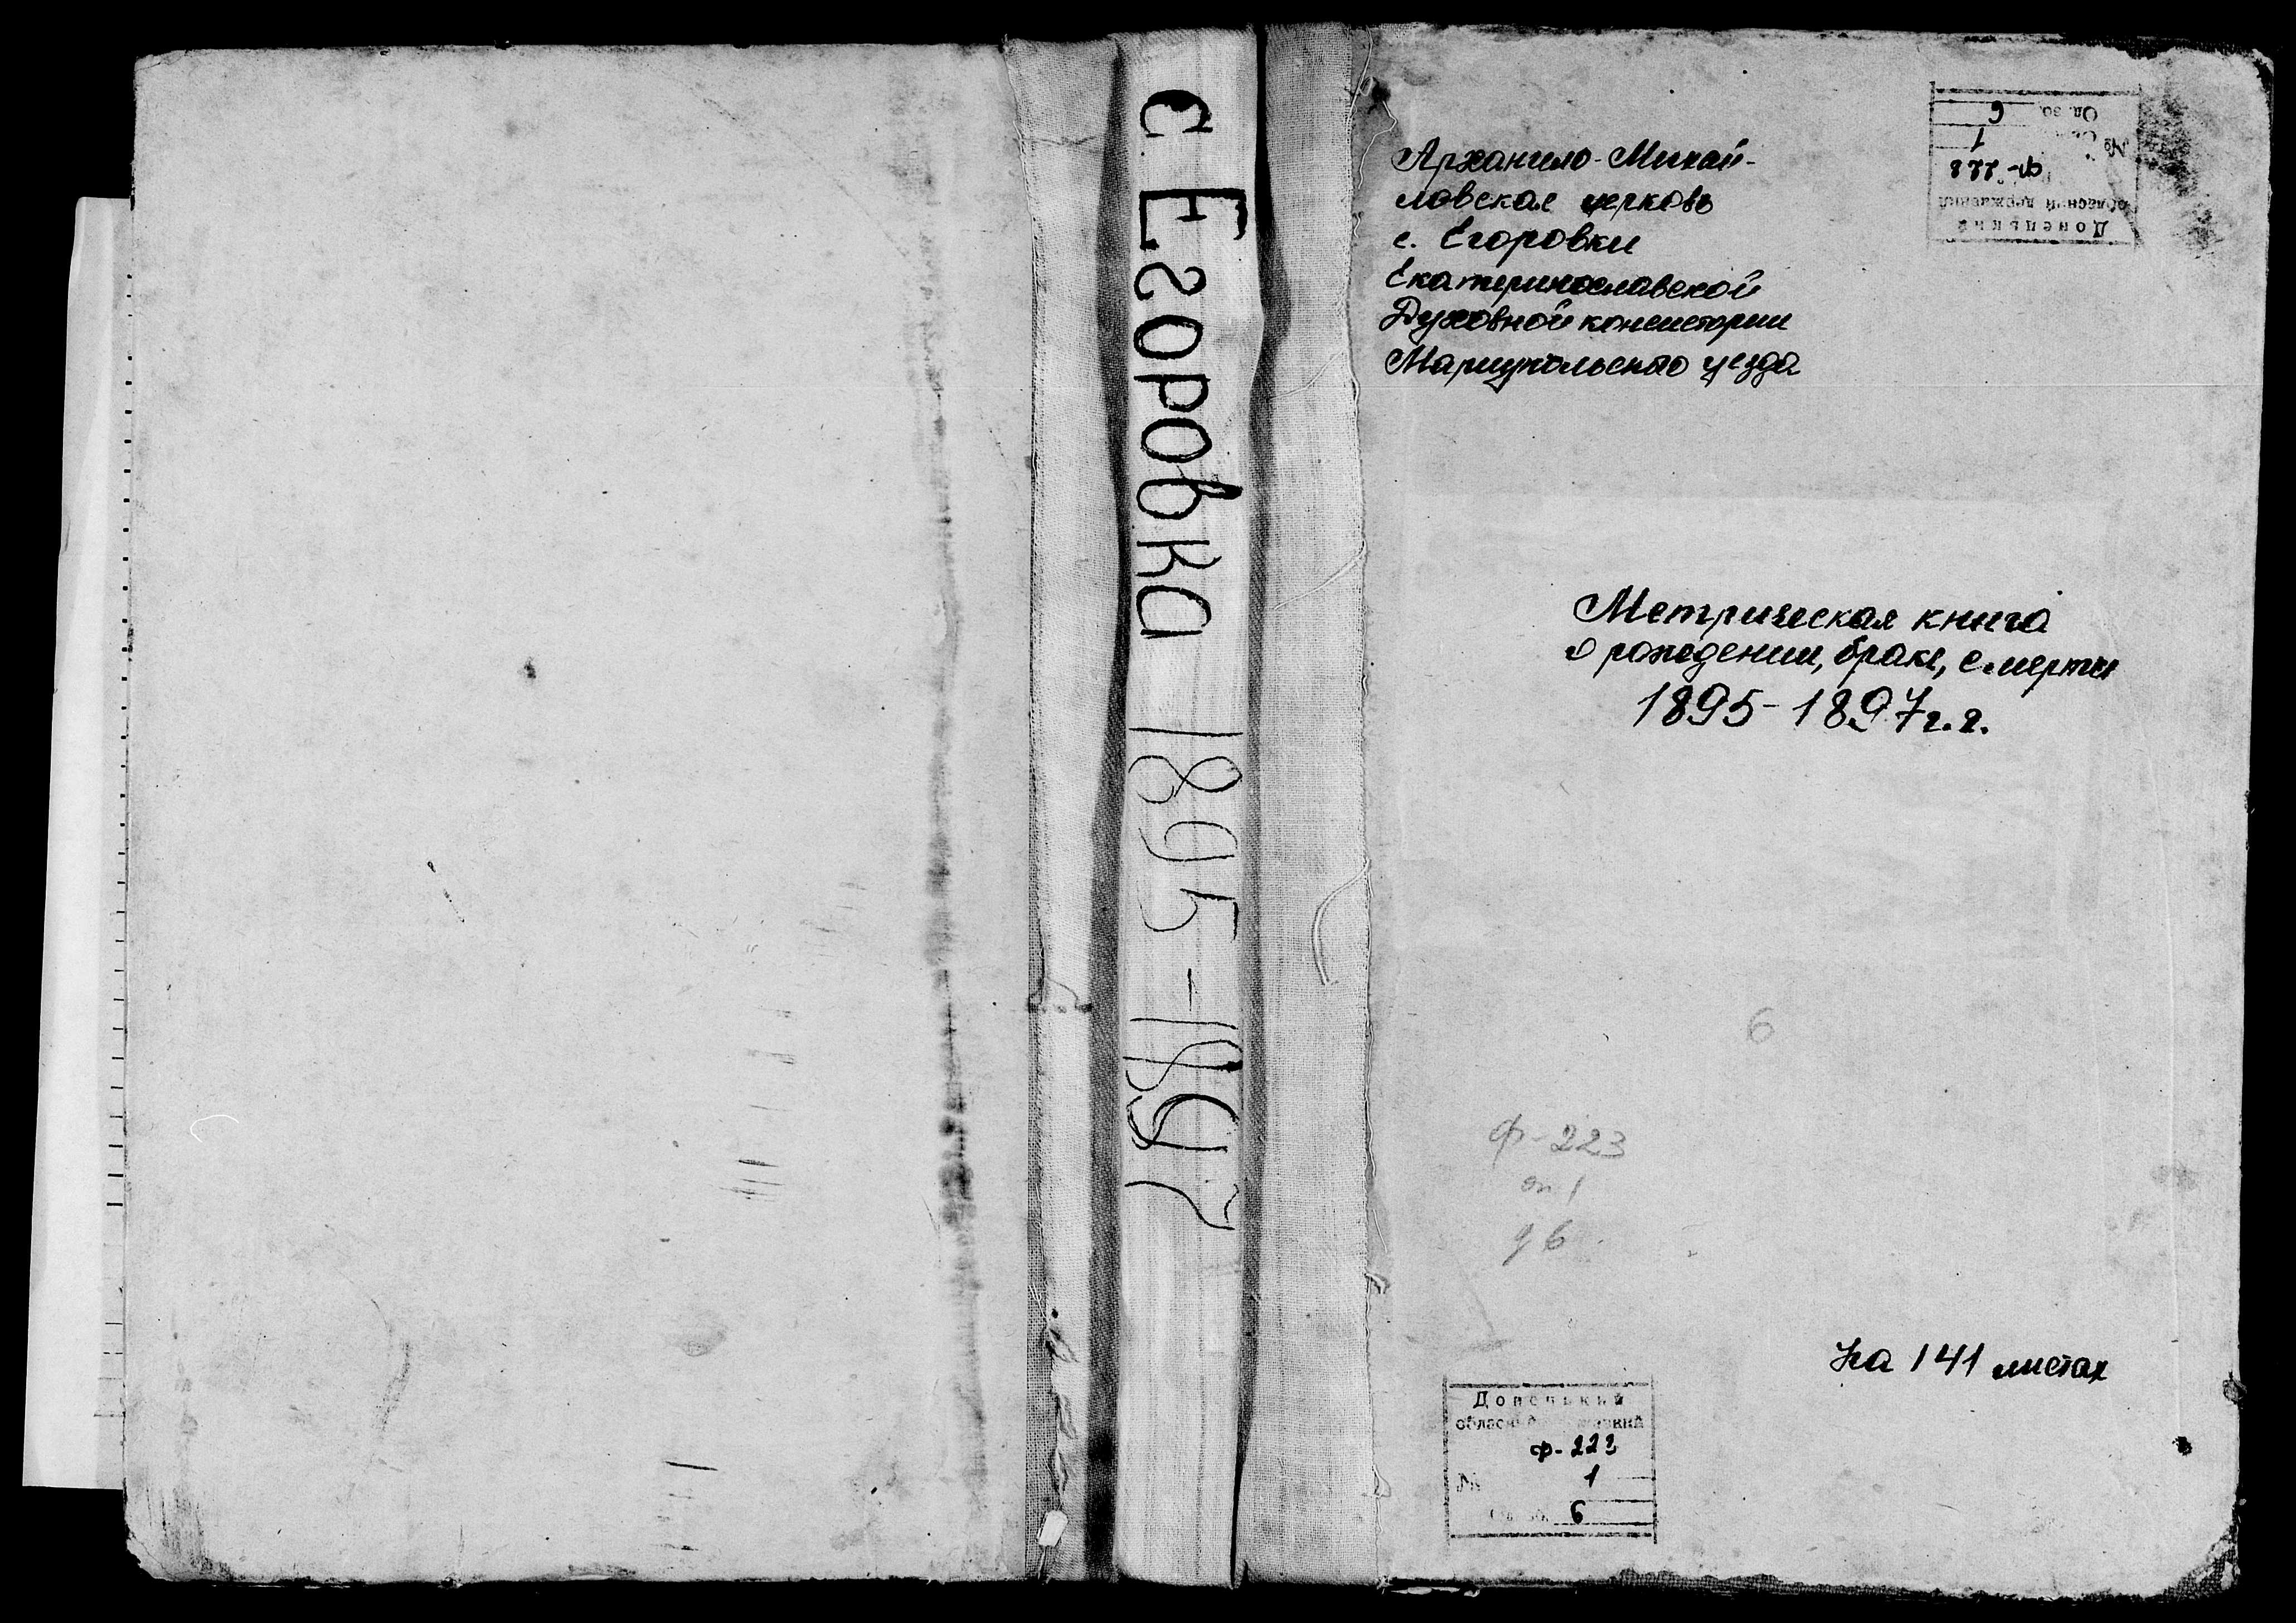 с Егоровка 1895-1897
Архангело-Михай-
ловская церковь
с. Егоровки
Екатеринославской
Духовной консистории
Мариупольского уезда
Донецький
обласний державний
ф-223
№ 1
Од. зб. 6
Метрическая книга
о рождении, браке, смерти
1895-1897 г.г.
6
ф-223
оп 1
д 6
На 141 листах
Донецький
обласний
ф-223
№ 1
6